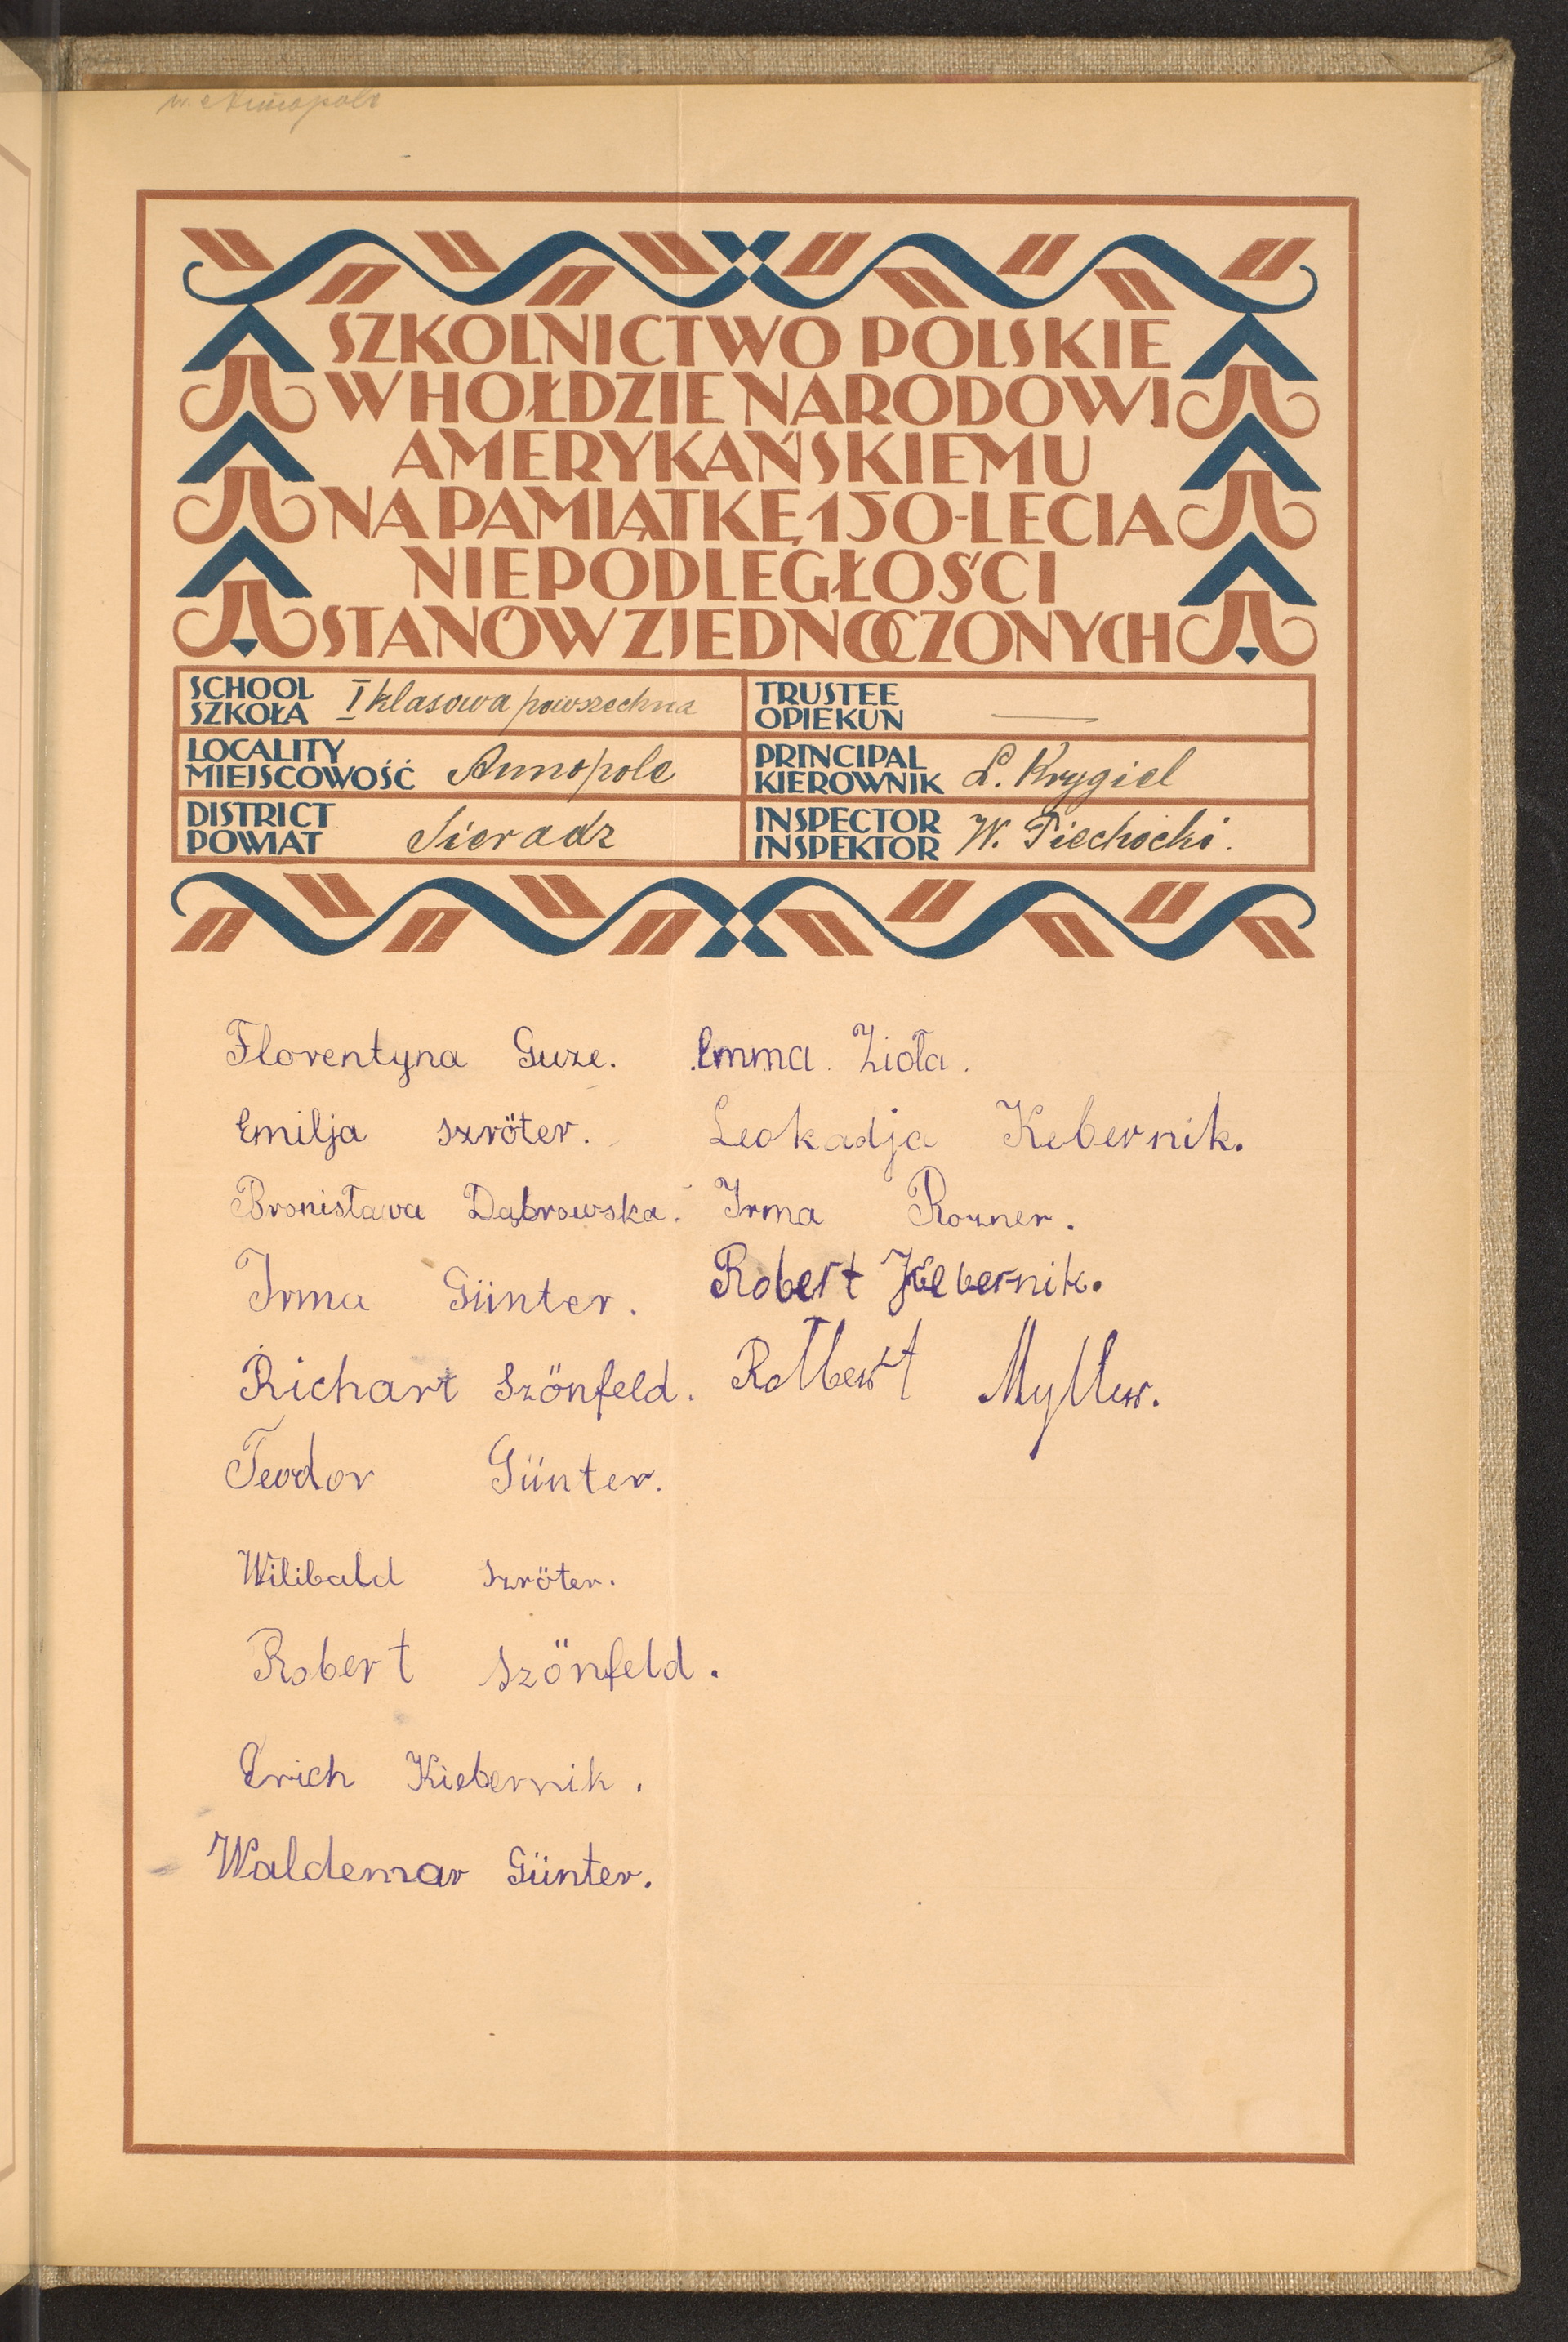 w. Annopole
SZKOLNICTWO POLSKIE
W HOŁDZIE NARODOWI
AMERYKAŃSKIEMU
NA PAMIĄTKĘ 150-LECIA
NIEPODLEGŁOŚCI
STANÓW ZJEDNOCZONYCH
SCHOOL
SZKOŁA I klasowa powszechna
TRUSTEE
OPIEKUN
LOCALITY
MIEJSCOWOŚĆ Annopole
PRINCIPAL
KIEROWNIK L. Krygiel
DISTRICT
POWIAT Sieradz
INSPECTOR
INSPEKTOR W. Piechocki.
Florentyna Guze.
Emilja szröter.
Bronisława Dąbrowska.
Irma Günter.
Richart Szönfeld.
Teodor Günter.
Wilibald Szröter.
Robert Szönfeld.
Erich Kiebernik.
Waldemar Günter.
Emma. Zioła.
Leokadja Kebernik.
Irma Rozner.
Robert Kebernik.
Myller.